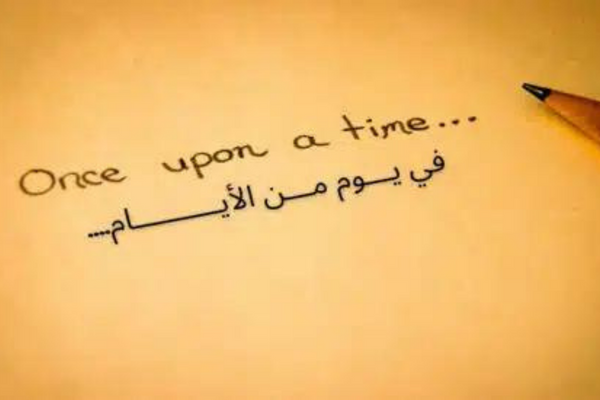 Once upon a time...
في يــوم مــن الأيـــــــام....